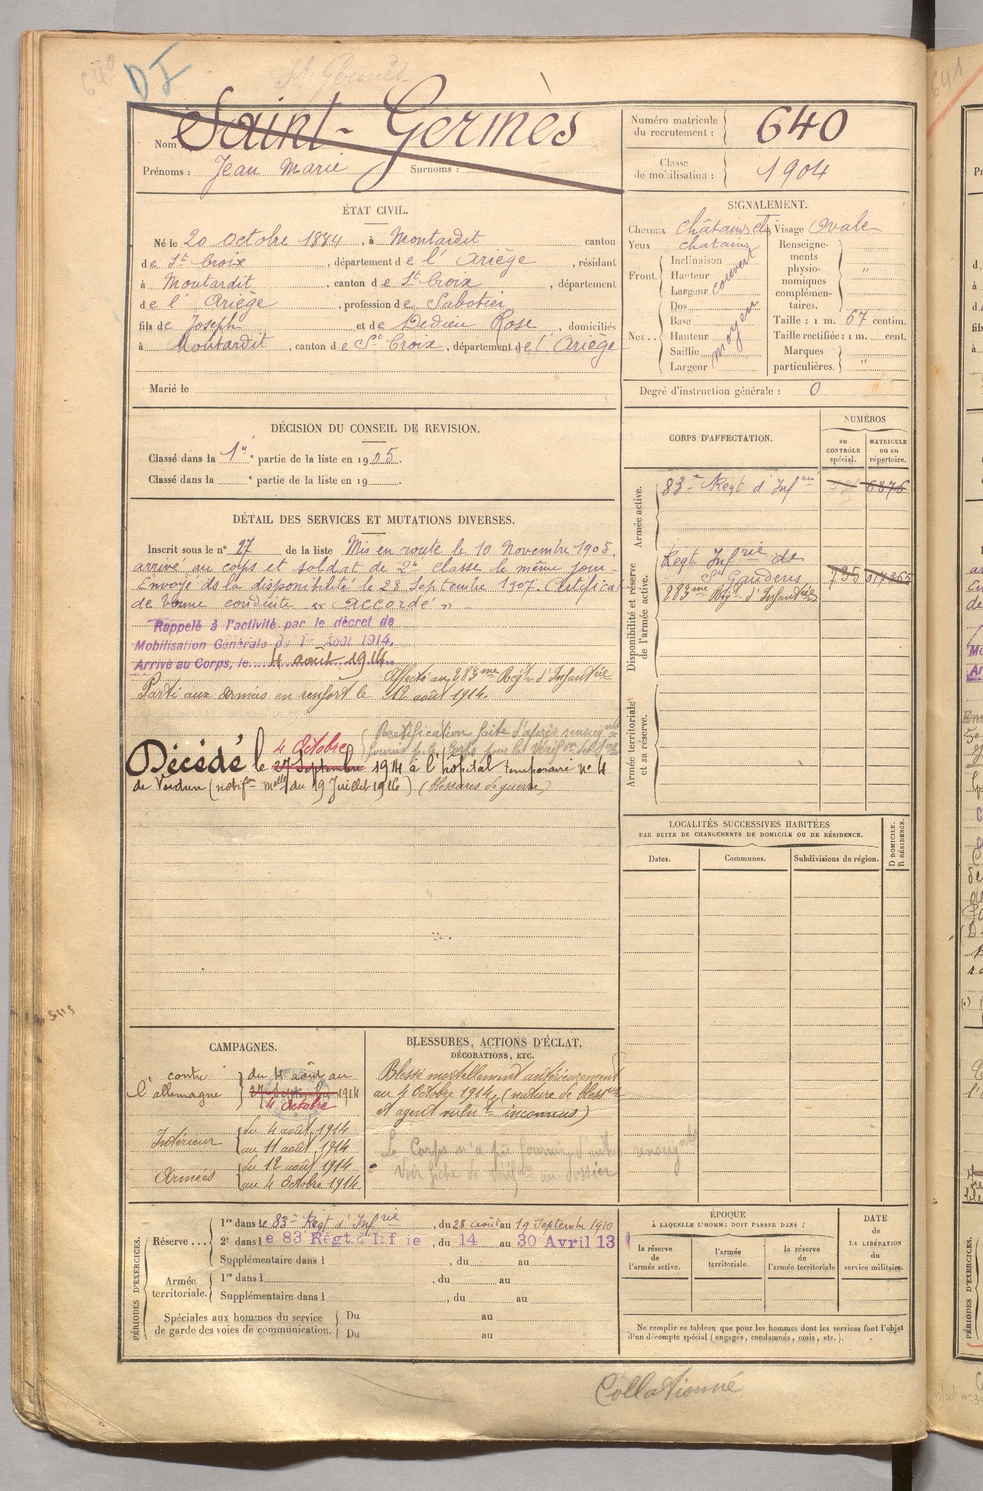 640
DJ
St Germès
Nom Saint-Germès
Prénoms : Jean Marie Surnoms :
Numéro matricule du recrutement : 640
Classe de mobilisation : 1904
ÉTAT CIVIL.
Né le 20 octobre 1884, à Montardit canton
de St Croix, département de l'Ariège, résidant
à Montardit, canton de St Croix, département
de l'Ariège, profession de Sabotier
fils de Joseph et de Dedieu Rose, domiciliés
à Montardit, canton de St Croix, département de l'Ariège
Marié le
SIGNALEMENT.
Cheveux châtains Visage Ovale
Yeux chatains
Front. Inclinaison Hauteur Largeur couvert
Nez.. Dos Base Hauteur Saillie Largeur moyen
Renseignements physionomiques complémentaires. "
Taille : 1 m. 67 centim.
Taille rectifiée : 1 m. cent.
Marques particulières. "
Degré d'instruction générale : 0
DÉCISION DU CONSEIL DE REVISION.
Classé dans la 1re partie de la liste en 1905.
Classé dans la e partie de la liste en 19
DÉTAIL DES SERVICES ET MUTATIONS DIVERSES.
Inscrit sous le n° 27 de la liste Mis en route le 10 Novembre 1905,
arrivé au corps et soldat de 2e classe le même jour.
Envoyé ds la disponibilité le 28 Septembre 1907. Certificat
de bonne conduite "accordé"
Rappelé à l'activité par le décret de
Mobilisation Générale du 1er Août 1914.
Arrivé au Corps, le 4 août 1914.
Affecté au 283me Régt d'Infantrie
Parti aux armées en renfort le 12 août 1914.
(Rectification faite d'après renseig
Décédé le 27 Septembre 4 Octobre 1914 à l'hôpital temporaire n° 4
de Verdun (notifon melle du 19 Juillet 1916) (blessures de guerre)
CORPS D'AFFECTATION.
NUMÉROS
AU CONTRÔLE spécial.
MATRICULE ou au répertoire.
Armée active.
83e Régt d'Infrie 6876
Disponibilité et réserve de l'armée active.
Régt Infrie de
St Gaudens 735
283me Régt d'Infantrie
Armée territoriale et sa réserve.
LOCALITÉS SUCCESSIVES HABITÉES
PAR SUITE DE CHANGEMENTS DE DOMICILE OU DE RÉSIDENCE.
Dates. Communes. Subdivisions de région.
D DOMICILE. R RÉSIDENCE.
CAMPAGNES.
contre l'allemagne du 4 août au
27 Septembre 1914
4 Octobre
Intérieur du 4 août 1914
au 11 août 1914
Armées du 12 août 1914
au 4 Octobre 1914.
BLESSURES, ACTIONS D'ÉCLAT,
DÉCORATIONS, ETC.
Blessé mortellement antérieurement
au 4 Octobre 1914, (nature de blessre
et agent vulnt inconnus)
Le Corps n'a pu fournir d'autres renseigts
Voir fiche de vérifon au dossier
PÉRIODES D'EXERCICES.
Réserve... 1re dans le 83e Régt d'Infrie, du 28 août au 19 Septembre 1910
2e dans le 83 Régt d'Infie, du 14 au 30 Avril 13
Supplémentaire dans l , du au
Armée territoriale. 1re dans l , du au
Supplémentaire dans l , du au
Spéciales aux hommes du service de garde des voies de communication. Du au
Du au
ÉPOQUE
À LAQUELLE L'HOMME DOIT PASSER DANS :
la réserve de l'armée active.
l'armée territoriale.
la réserve de l'armée territoriale
DATE DE LA LIBÉRATION du service militaire.
Ne remplir ce tableau que pour les hommes dont les services font l'objet
d'un décompte spécial (engagés, condamnés, omis, etc.).
Collationné
641